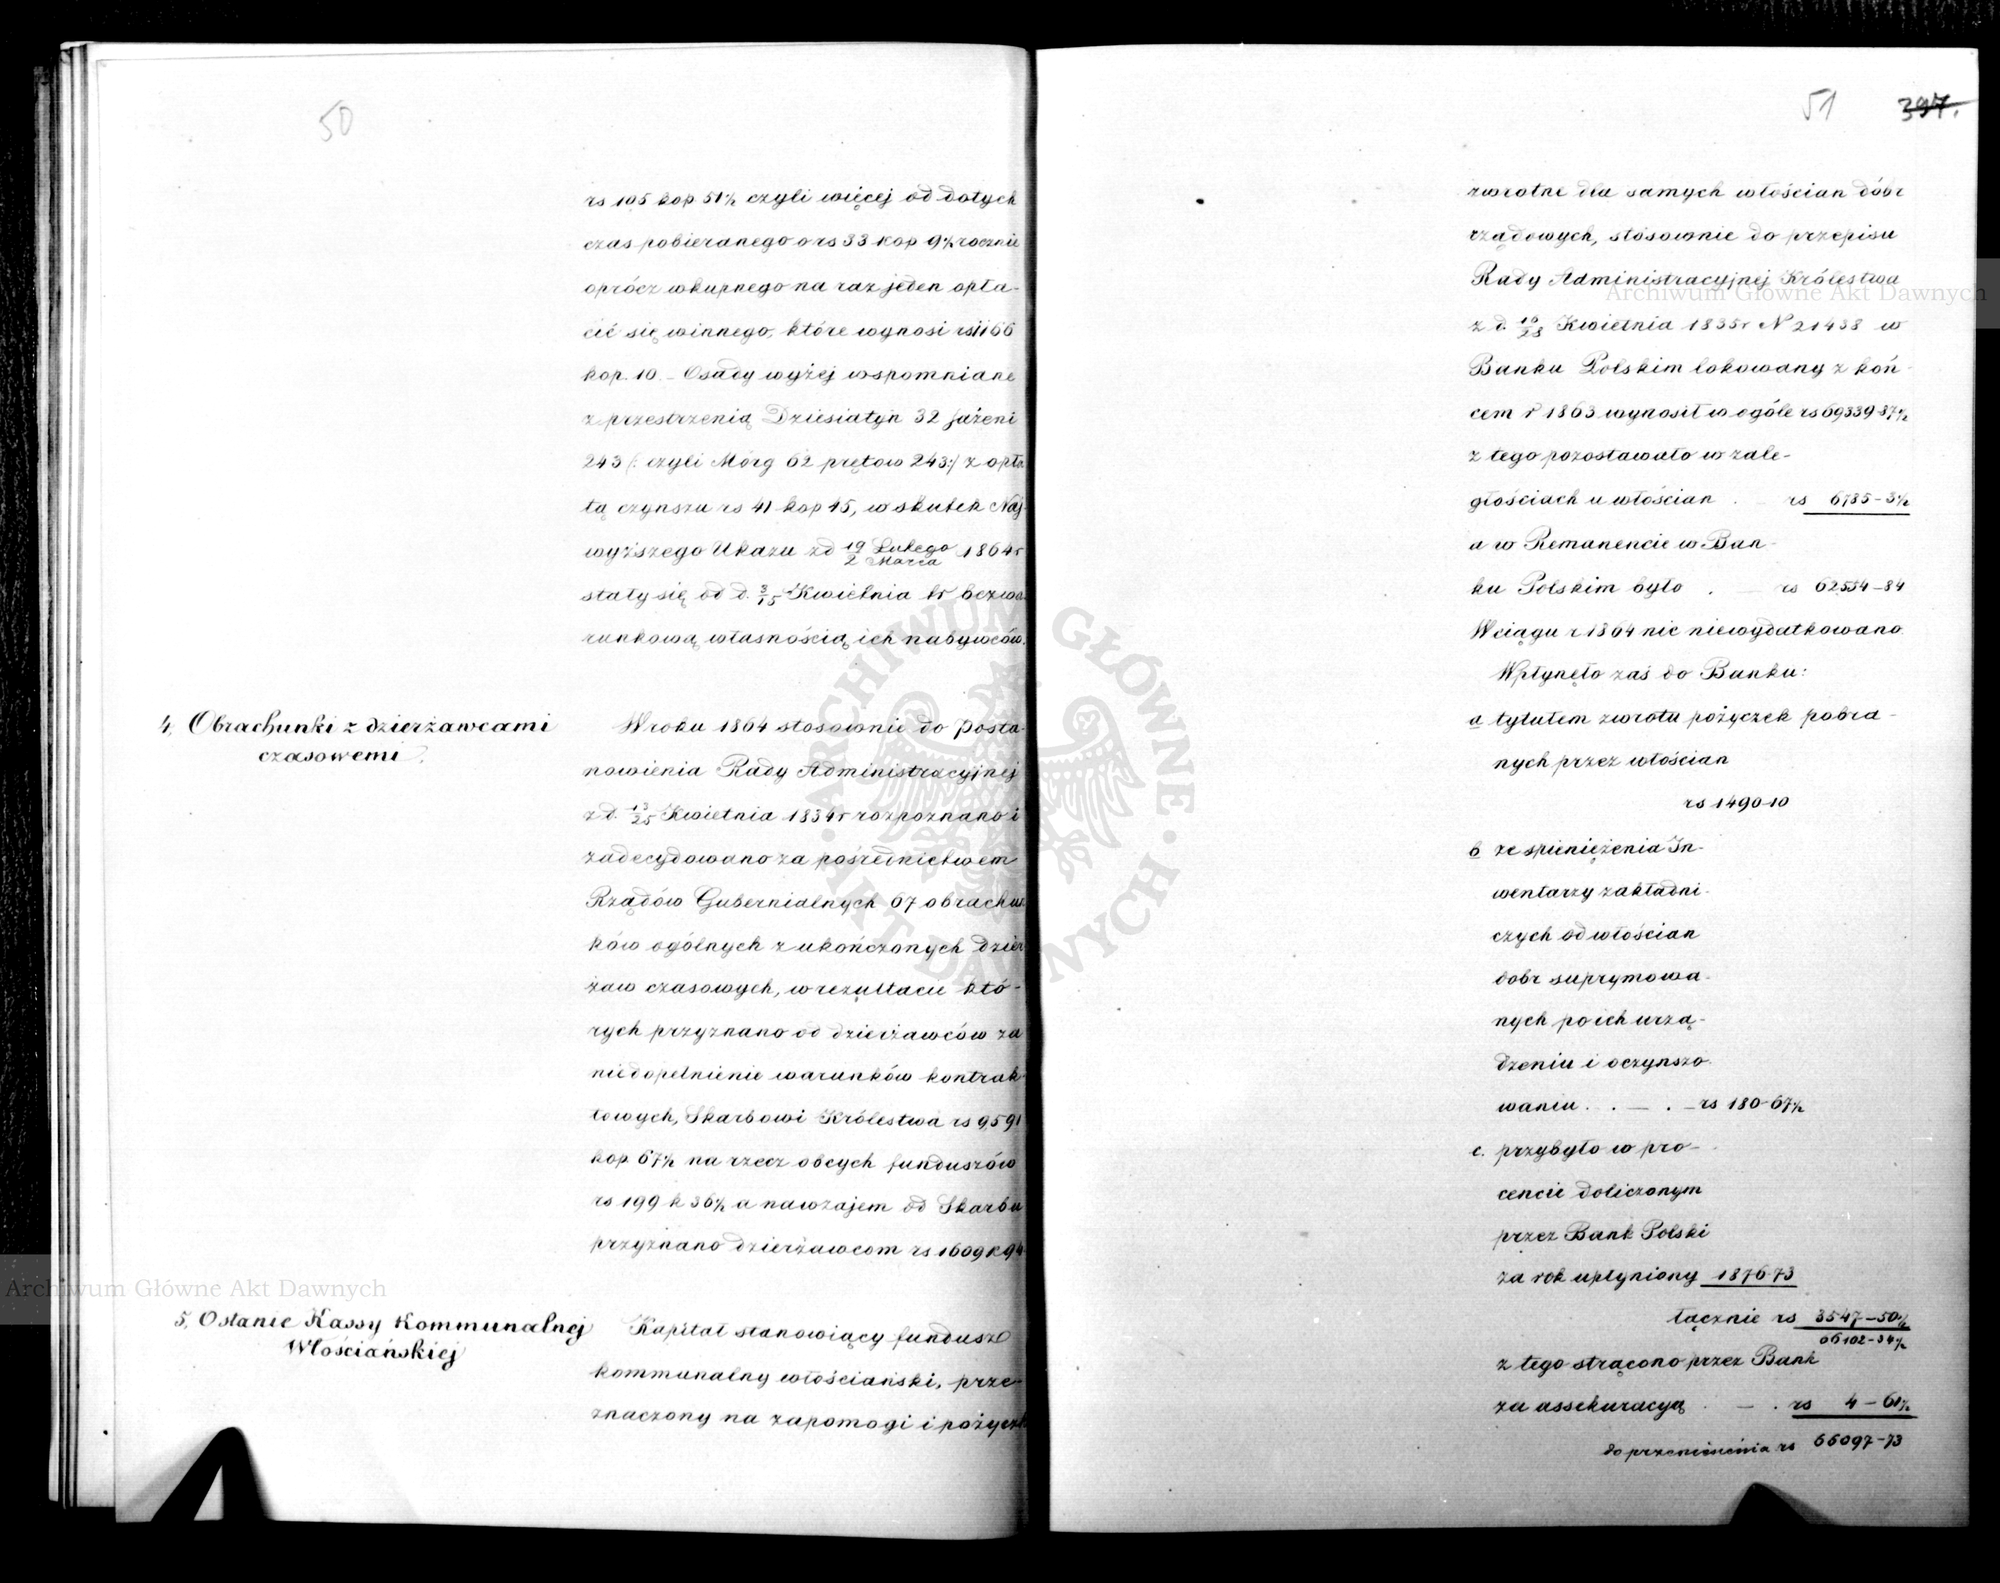 50
rs 105 kop 51½ czyli więcej od dotych
czas pobieranego o rs 33 kop 9½ rocznie
oprócz wkupnego na raz jeden opła-
cić się winnego, które wynosi rs 1166
kop. 10. – Osady wyżej wspomniane
z przestrzenią Dziesiatyn 32 sążeni
243 /: czyli Mórg 62 prętow 243:/ z opła
tą czynszu rs 41 kop 45, w skutek Naj-
wyższego Ukazu z d 19 Lutego / 2 Marca 1864 r
stały się od d. 3/15 Kwietnia tr bezwa-
runkową własnością ich nabywców.
4, Obrachunki z dzierżawcami
czasowemi.
W roku 1864 stosownie do posta-
nowienia Rady Administracyjnej
z d. 13/25 Kwietnia 1834 r rozpoznano i
zadecydowano za pośrednictwem
Rządów Gubernialnych 67 obrachun
ków ogólnych z ukończonych dzier
żaw czasowych, w rezultacie któ-
rych przyznano od dzierżawców za
niedopełnienie warunków kontrak-
towych, Skarbowi Królestwa rs 9,591
kop. 67½ na rzecz obcych funduszów
rs 199 k 36½ a nawzajem od Skarbu
przyznano dzierżawcom rs 1609 k 94
5, Ostanie Kassy Kommunalnej
Włościańskiej
Kapitał stanowiący fundusz
kommunalny włościański, prze-
znaczony na zapomogi i pożyczki
51 397.
zwrotne dla samych włościan dóbr
rządowych, stósownie do przepisu
Rady Administracyjnej Królestwa
z d. 16/28 Kwietnia 1835 r N 21438 w
Banku Polskim lokowany z koń-
cem r 1863 wynosił w ogóle rs 69339-87½
z tego pozostawało w zale-
głościach u włościan . – rs 6785-3½
a w Remanencie w Ban-
ku Polskim było . – rs 62554-84
W ciągu r 1864 nic niewydatkowano.
Wpłynęło zaś do Banku:
a tytułem zwrotu pożyczek pobra-
nych przez włościan
rs 1490-10
b ze spieniężenia In-
wentarzy zakładni-
czych od włościan
dobr suprymowa-
nych po ich urzą-
dzeniu i oczynszo-
waniu . . – . – rs 180-67½
c. przybyło w pro-
cencie doliczonym
przez Bank Polski
za rok upłyniony 1876-73
łącznie rs 3547-50½
66102-34½
z tego strącono przez Bank
za assekuracyą . – . rs 4-61½
do przeniesienia rs 66097-73
Archiwum Główne Akt Dawnych
Archiwum Główne Akt Dawnych
ARCHIWUM GŁÓWNE AKT DAWNYCH